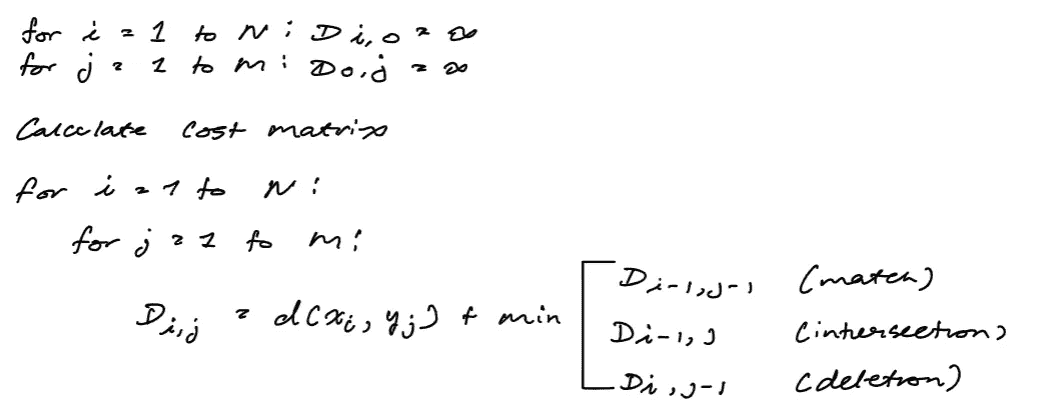 for i = 1 to N : D i,0 = ∞
for j = 1 to m : D 0,j = ∞
Calculate cost matrix
for i = 1 to N :
for j = 1 to m :
D i,j = d(x i, y j) + min [ D i-1,j-1 (match)
D i-1,j (intersection)
D i,j-1 (deletion)